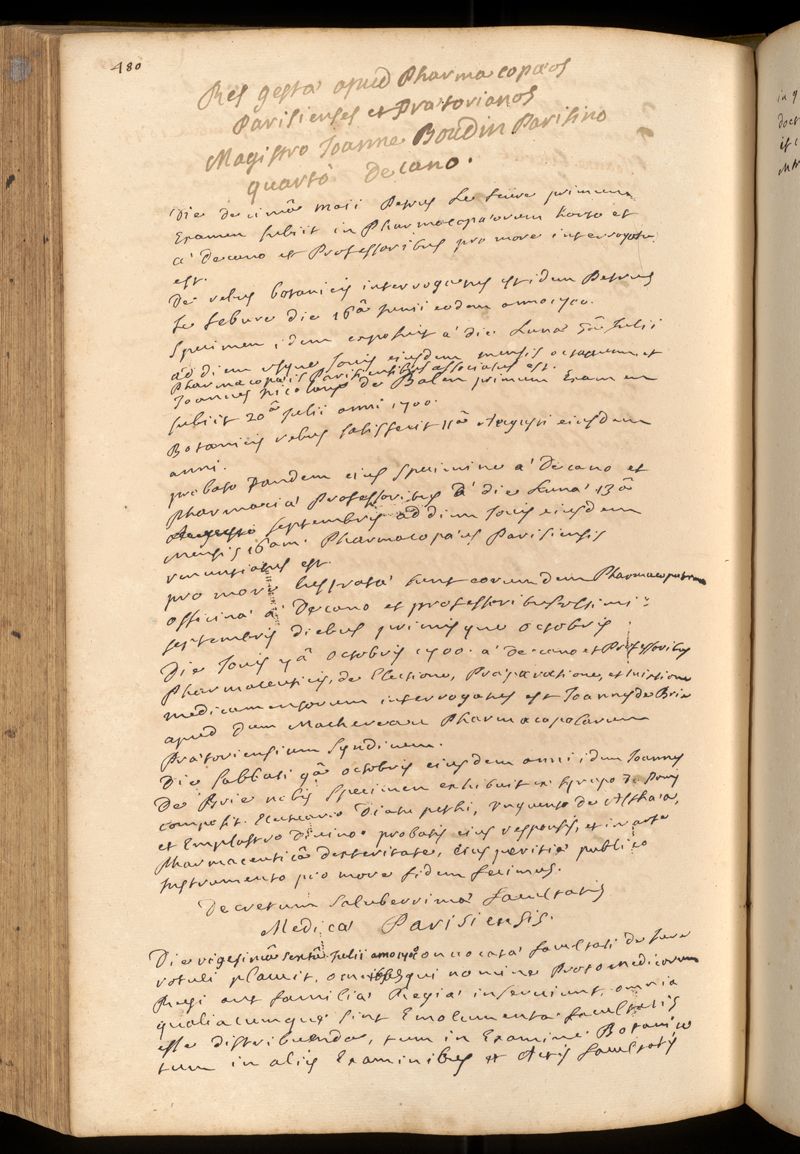 480
Res gesta apud Pharmacopæos
Parisienses et Prætorianos
Magistro Joanne Boudin Parisino
quartò Decano.
Die decimâ Maii Petrus Le febure primum
Examen subiit in Pharmacopæorum horto et
à Decano et Professoribus pro more interrogatus
est.
De rebus botanicis interrogatus est idem Petrus
Le febure die 16â Junii eodem anno 1700.
Specimen idem exposuit à die Lunæ 5â Julii
ad diem usque Jovis ejusdem mensis octavum et
Pharmacopæis Parisiensibus associatus est.
Joannes Nicolaus de Balen primum Examen
subiit 20â Julii anni 1700.
Botanicis rebus satisfecit 11â Augusti ejusdem
anni.
probato tandem ejus specimine à Decano et
Pharmaciæ Professoribus à die Lunæ 13â
septembris ad diem Jovis ejusdem
mensis 16am. Pharmacopæus Parisiensis
renuntiatus est.
pro more lustratæ sunt eorumdem Pharmacopæorum
officinæ à Decano et professoribus
septembris diebus primisque octobris
Die Jovis 7â octobris 1700. à Decano et Professoribus
Pharmaceuticis, de Electione, Præparatione, et mixtione
medicamentorum interrogatus est Joannes de Brie
apud dum Machereau Pharmacopolarum
Prætoriensium Syndicum.
Die Sabbati 9â octobris ejusdem anni idem Joannes
De Brie nobis specimen exhibuit ex syrupo de
composit. Electuario Diatu pethi, Unguento de Althæa,
et Emplastro Divino. probatis ejus responsis, et in arte
Pharmaceuticâ dexteritate, Ejus peritiæ publico
Instrumento pro more fidem fecimus.
Decretum Saluberrimæ facultatis
Medicæ Parisiensis.
Die vigesimâ sextâ Julii convocatæ facultati de Jure
rotuli placuit, qui nomine Protomedicorum
Regi aut familiæ Regiæ inserviunt, omnia
qualiacumque sint Emolumenta facultatis
esse distribuenda, tum in Examine Botanico
tum in aliis Examinibus et Actis facultatis